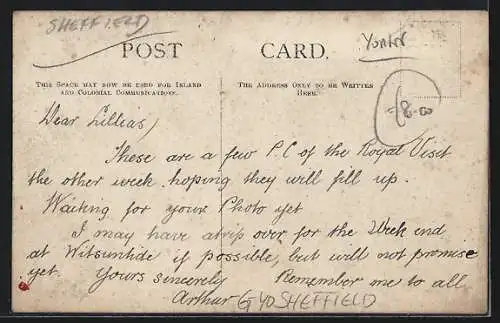 SHEFFIELD
POST CARD.
Yorks
THIS SPACE MAY NOW BE USED FOR INLAND
AND COLONIAL COMMUNICATIONS.
THE ADDRESS ONLY TO BE WRITTEN
HERE.
Dear Lilleas,
These are a few P.C of the Royal Visit
the other week. hoping they will fill up.
Waiting for your Photo yet
I may have a trip over for the Week end
at Witsuntide if possible, but will not promise
yet. Yours sincerely Remember me to all
Arthur G YO SHEFFIELD